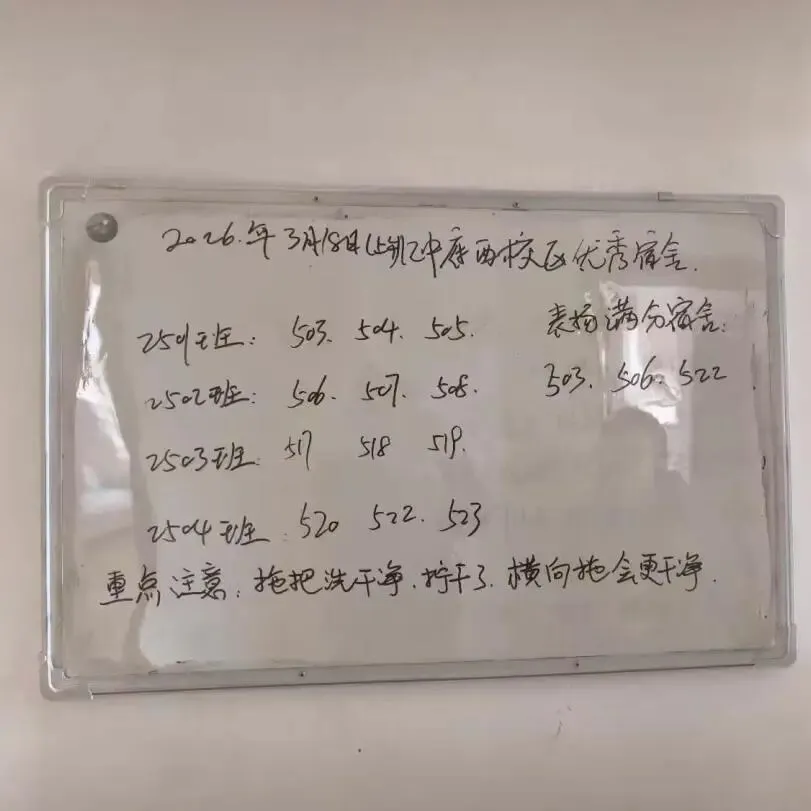 2026.年3月18日(上午)中康西校区优秀宿舍.
2501班: 503. 504. 505.
表扬满分宿舍:
2502班: 506. 507. 508.
503. 506. 522
2503班: 517 518 519.
2504班: 520 522. 523
重点注意: 拖把洗干净.拧干了.横向拖会更干净.